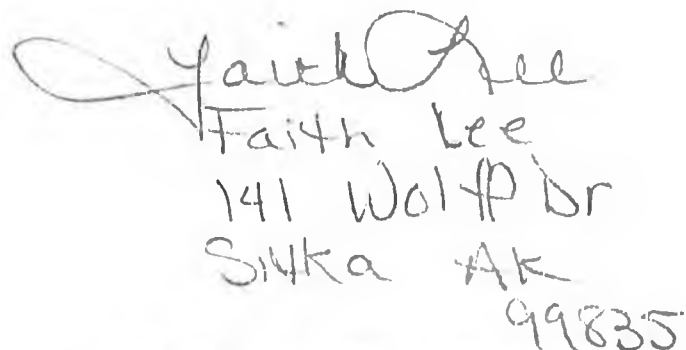 Faith Lee
Faith Lee
141 Wolff Dr
Sitka Ak
99835